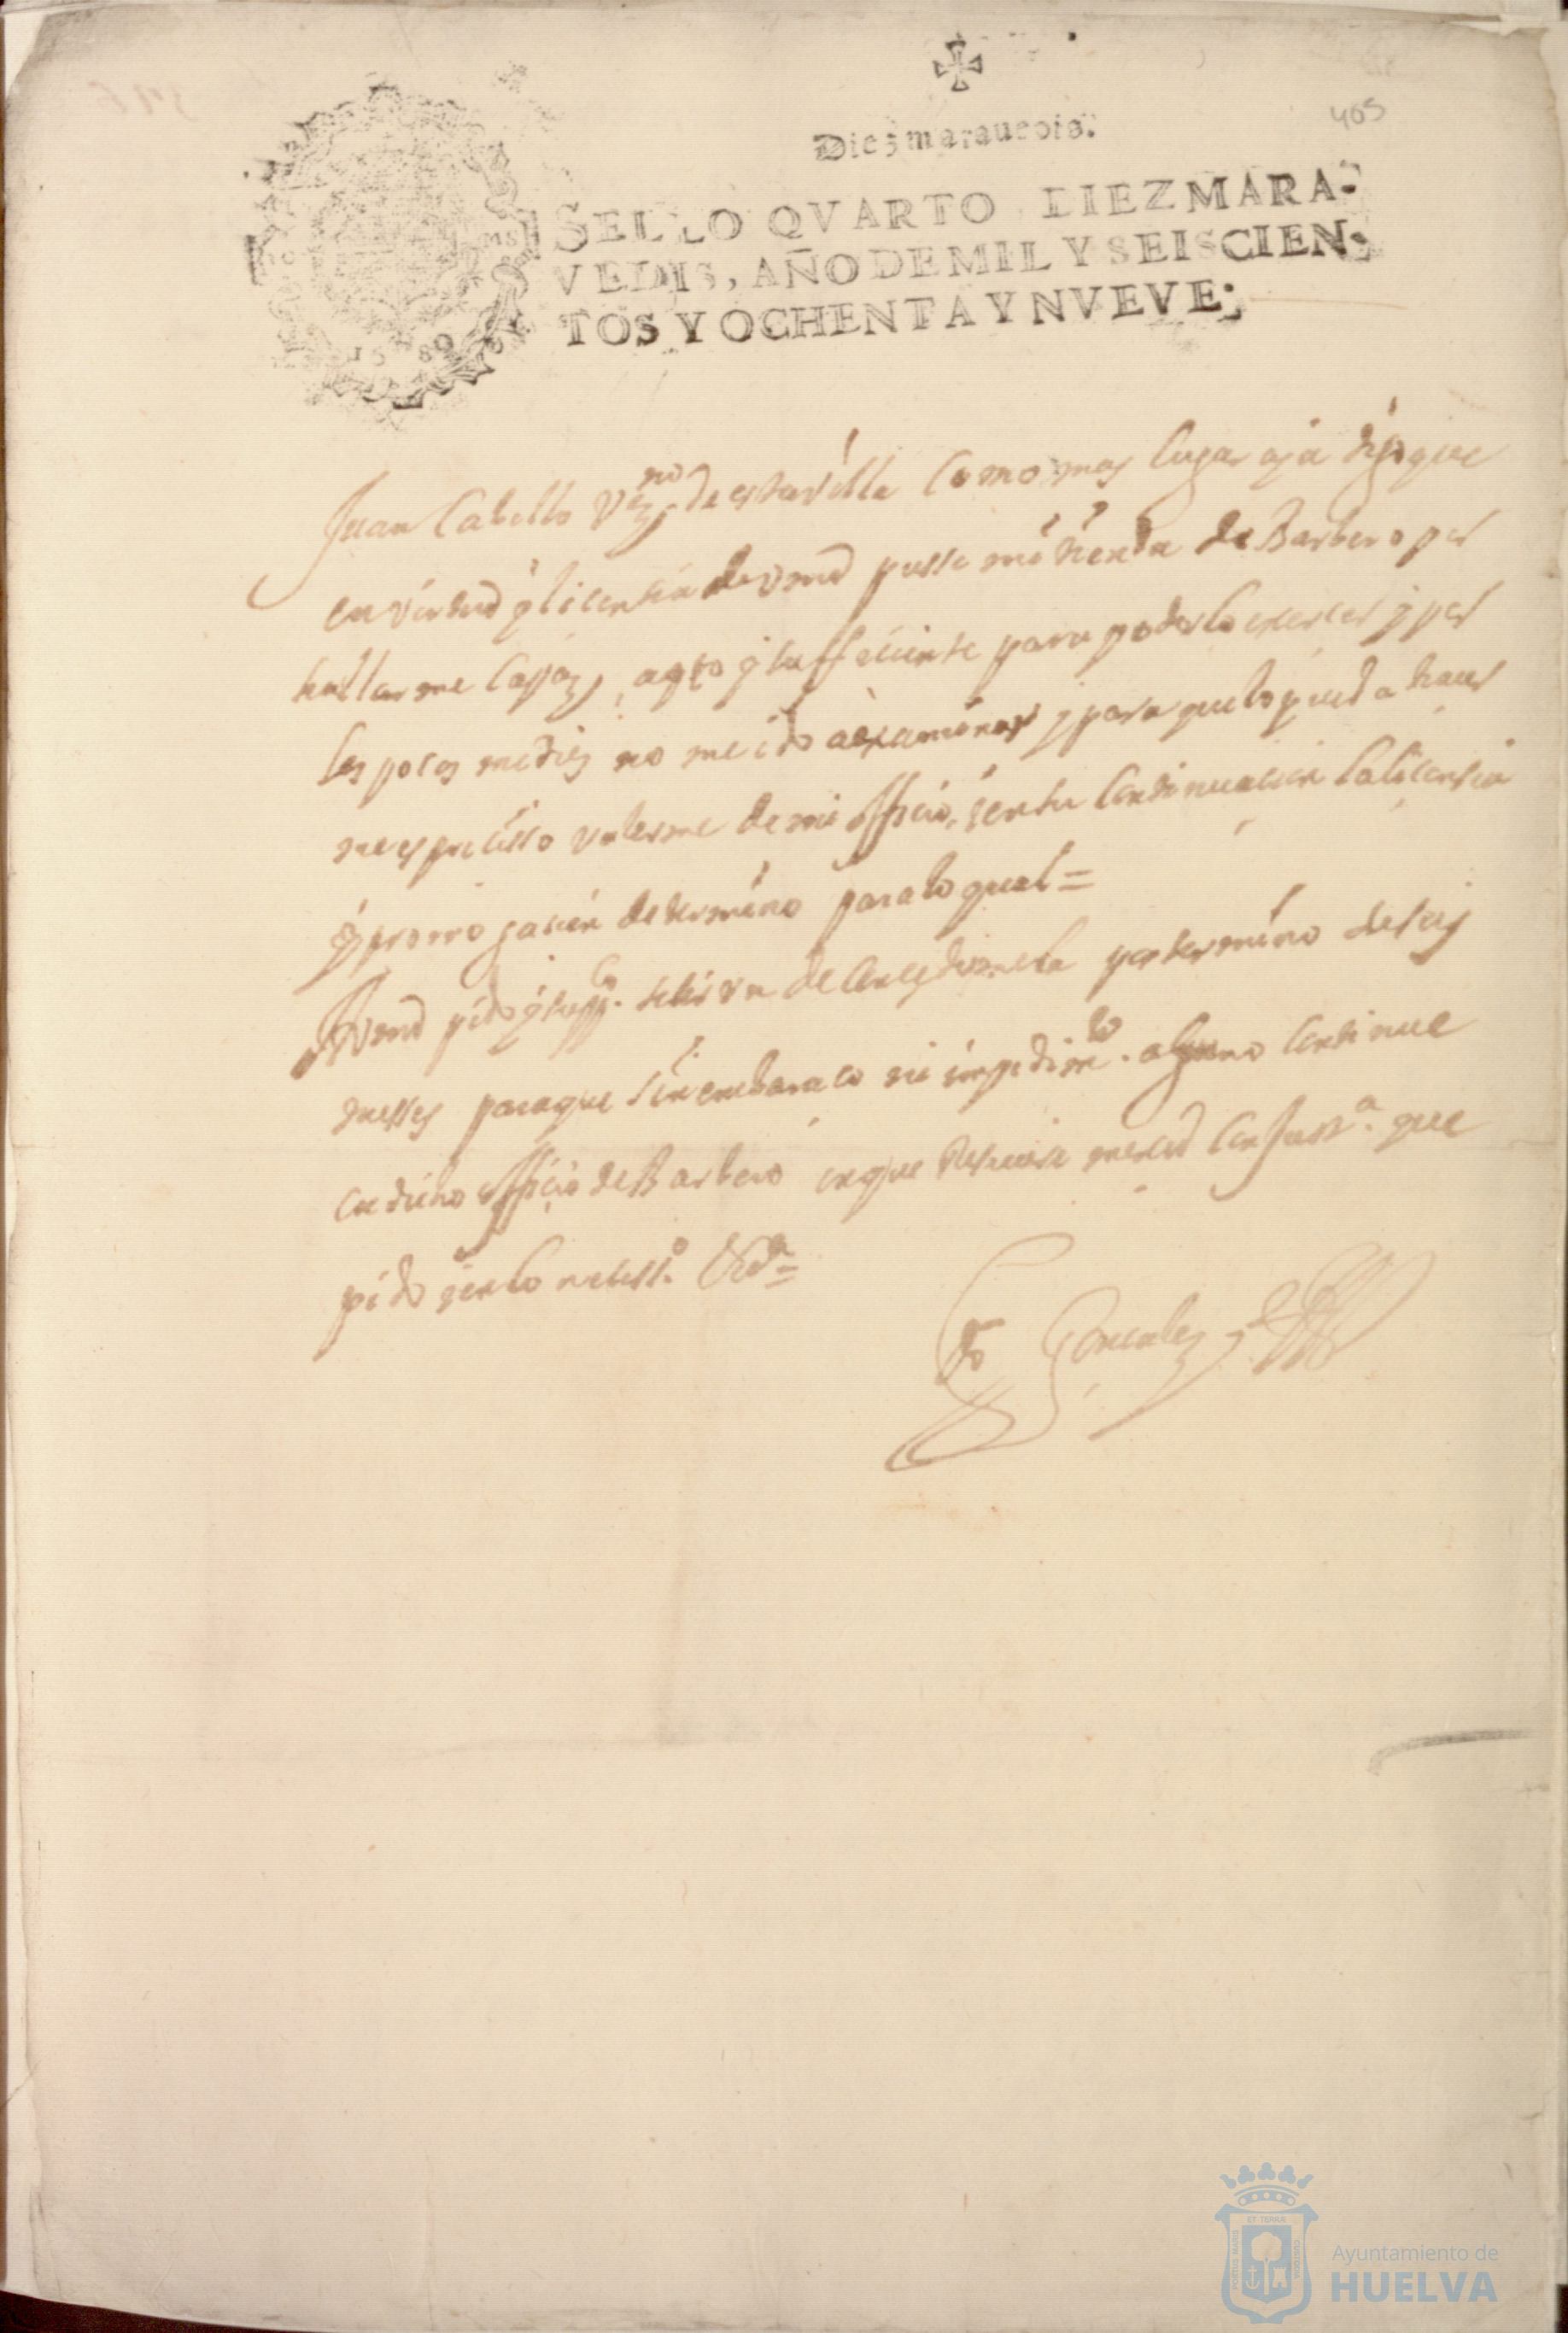 405
Diez marauedis.
SELLO QVARTO DIEZ MARA-
VEDIS, AÑO DE MIL Y SEISCIEN-
TOS Y OCHENTA Y NVEVE.
Juan Cabello vezno de esta villa como mas lugar aja digo que
en virdud y licensia de vmd pusse mi tienda de Barbero por
hallarme Capaz, apto y sufficiente para poderlo exerser y por
los pocos medios no me e ido a examinar y para que lo pueda hacer
me es presisso valerme de mi officio, y en su Continuacion la licensia
y prorrogasion de termino para lo qual =
A Vmd pido y suppco. se sirva de Consedermela por termino de seis
messes para que sin embaraco ni impedimto. alguno Continue
en dicho officio de Barbero en que resevire merced con Justa. que
pido y en lo nesessro. &ra =
Do Goncales
ET TERRA
PORTUS MARIS
CUSTODIA
Ayuntamiento de
HUELVA